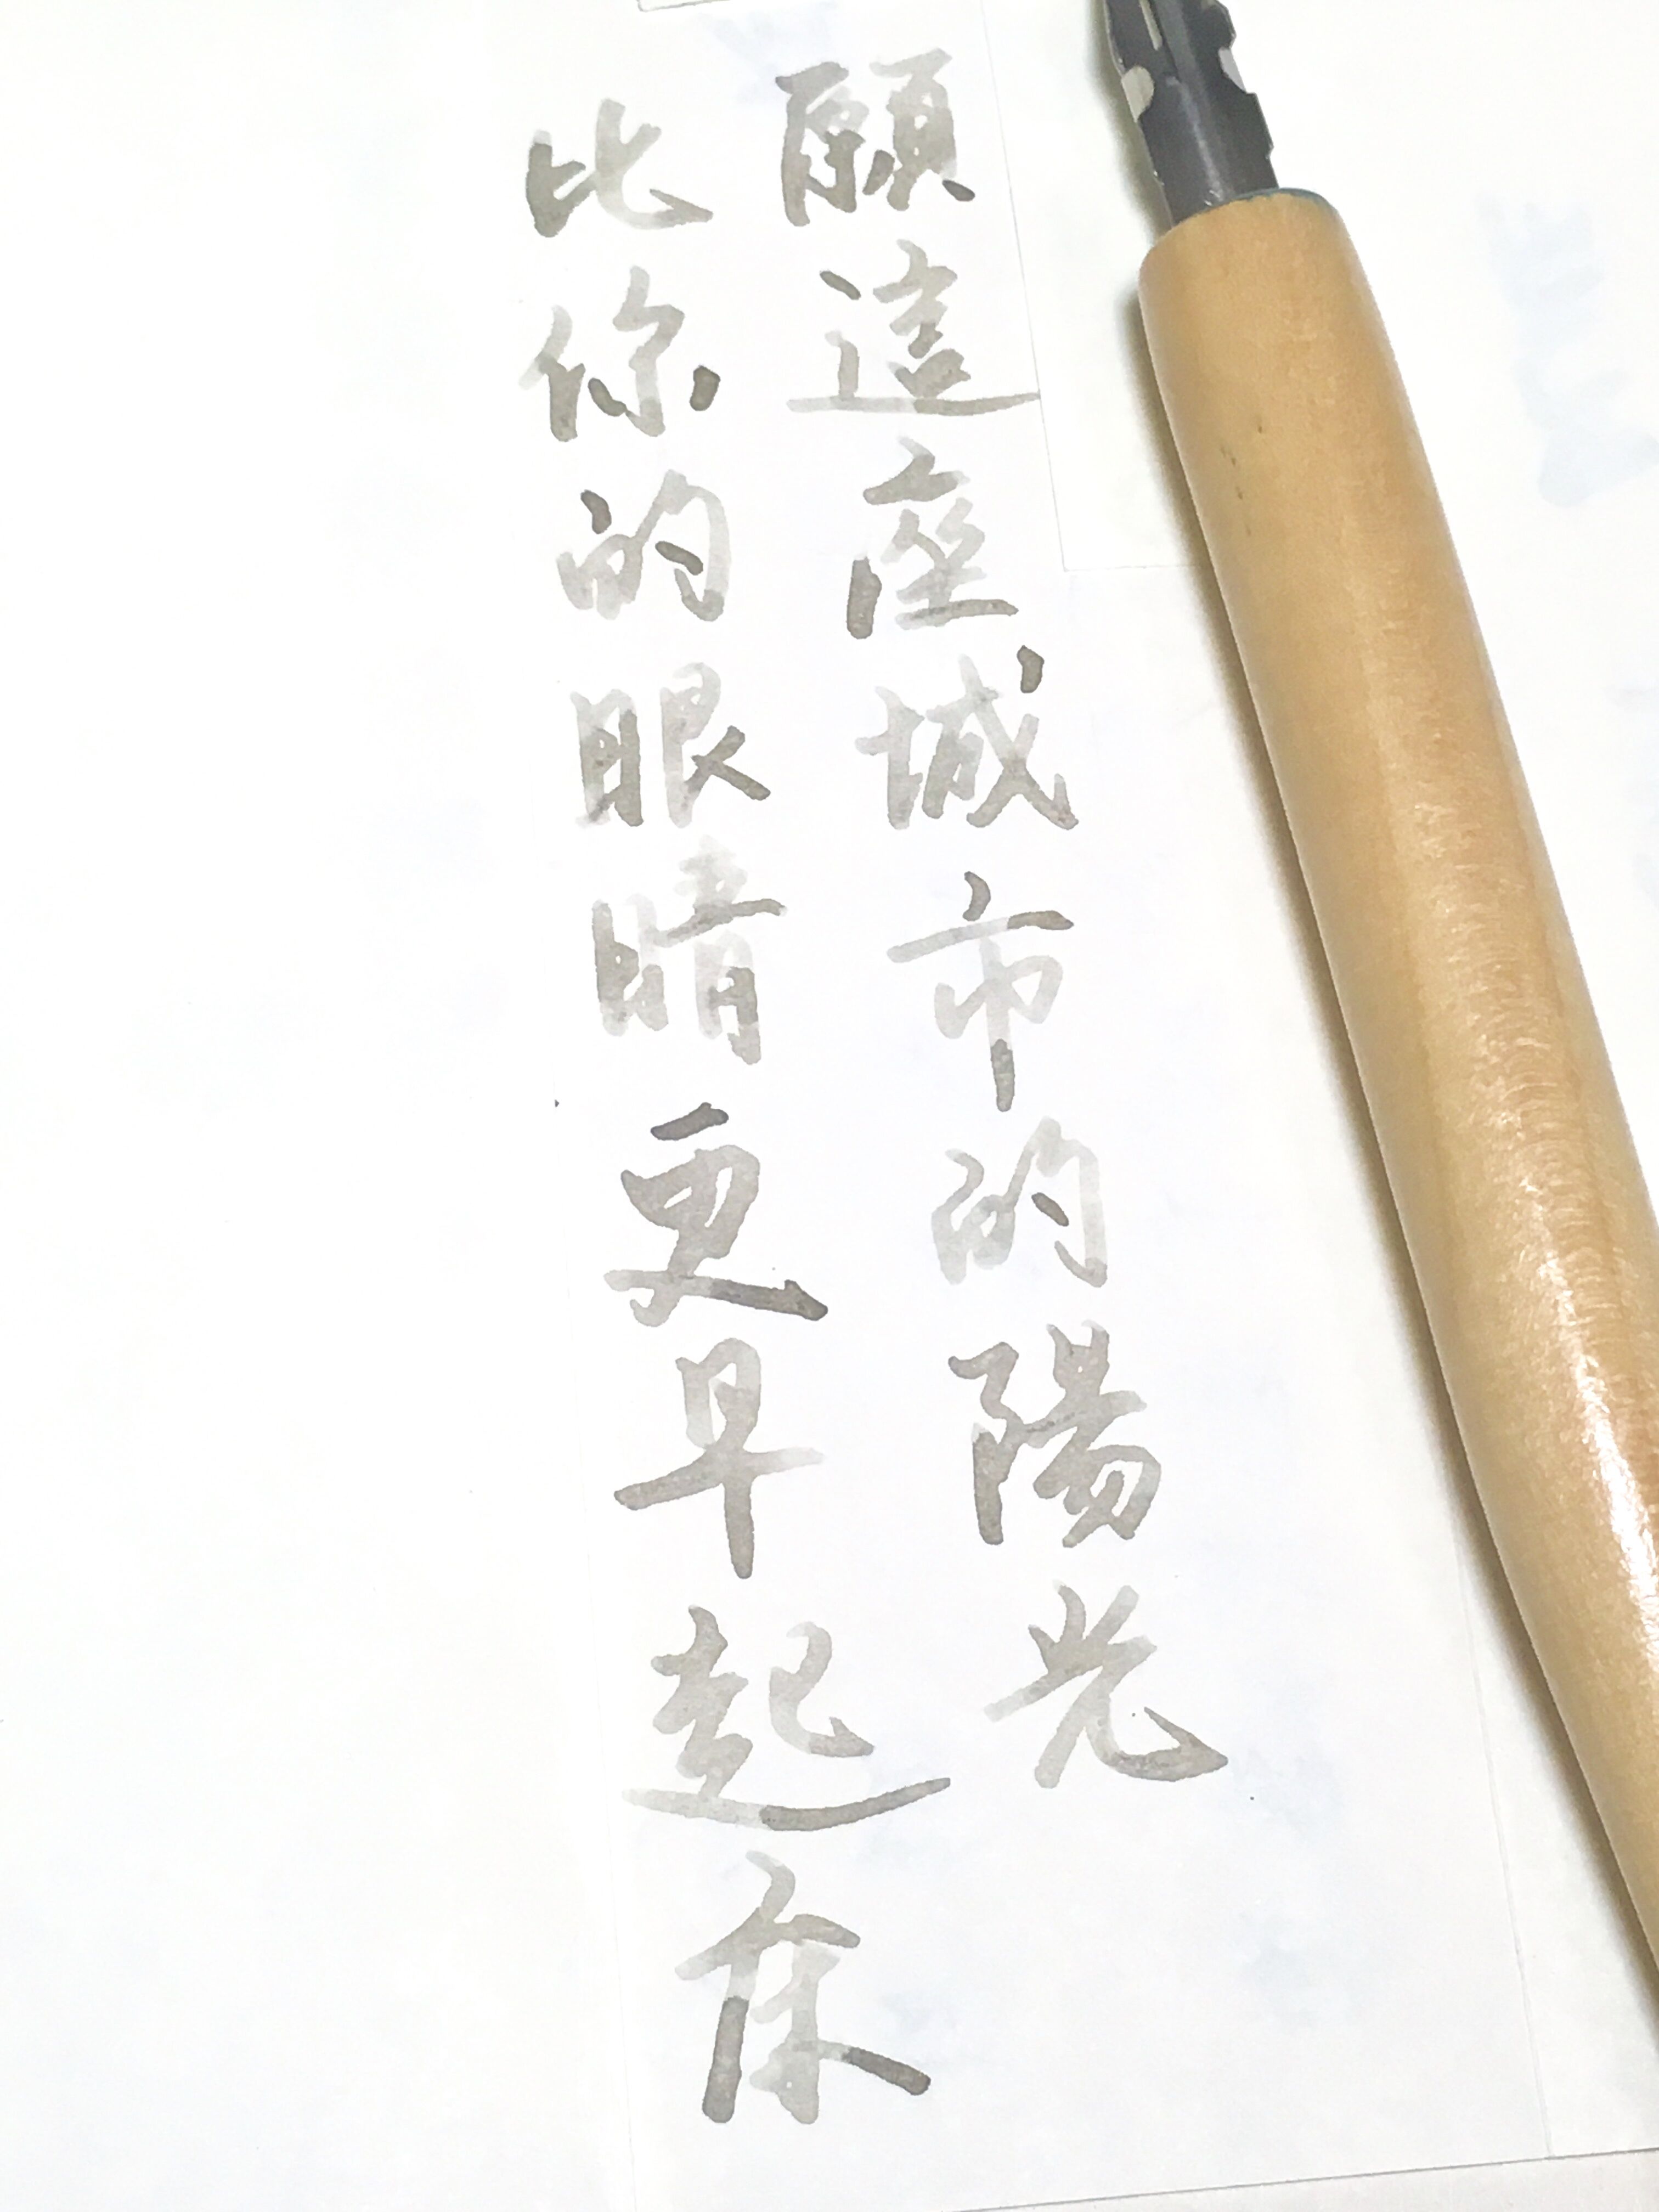 願這座城市的陽光
比你的眼睛更早起床